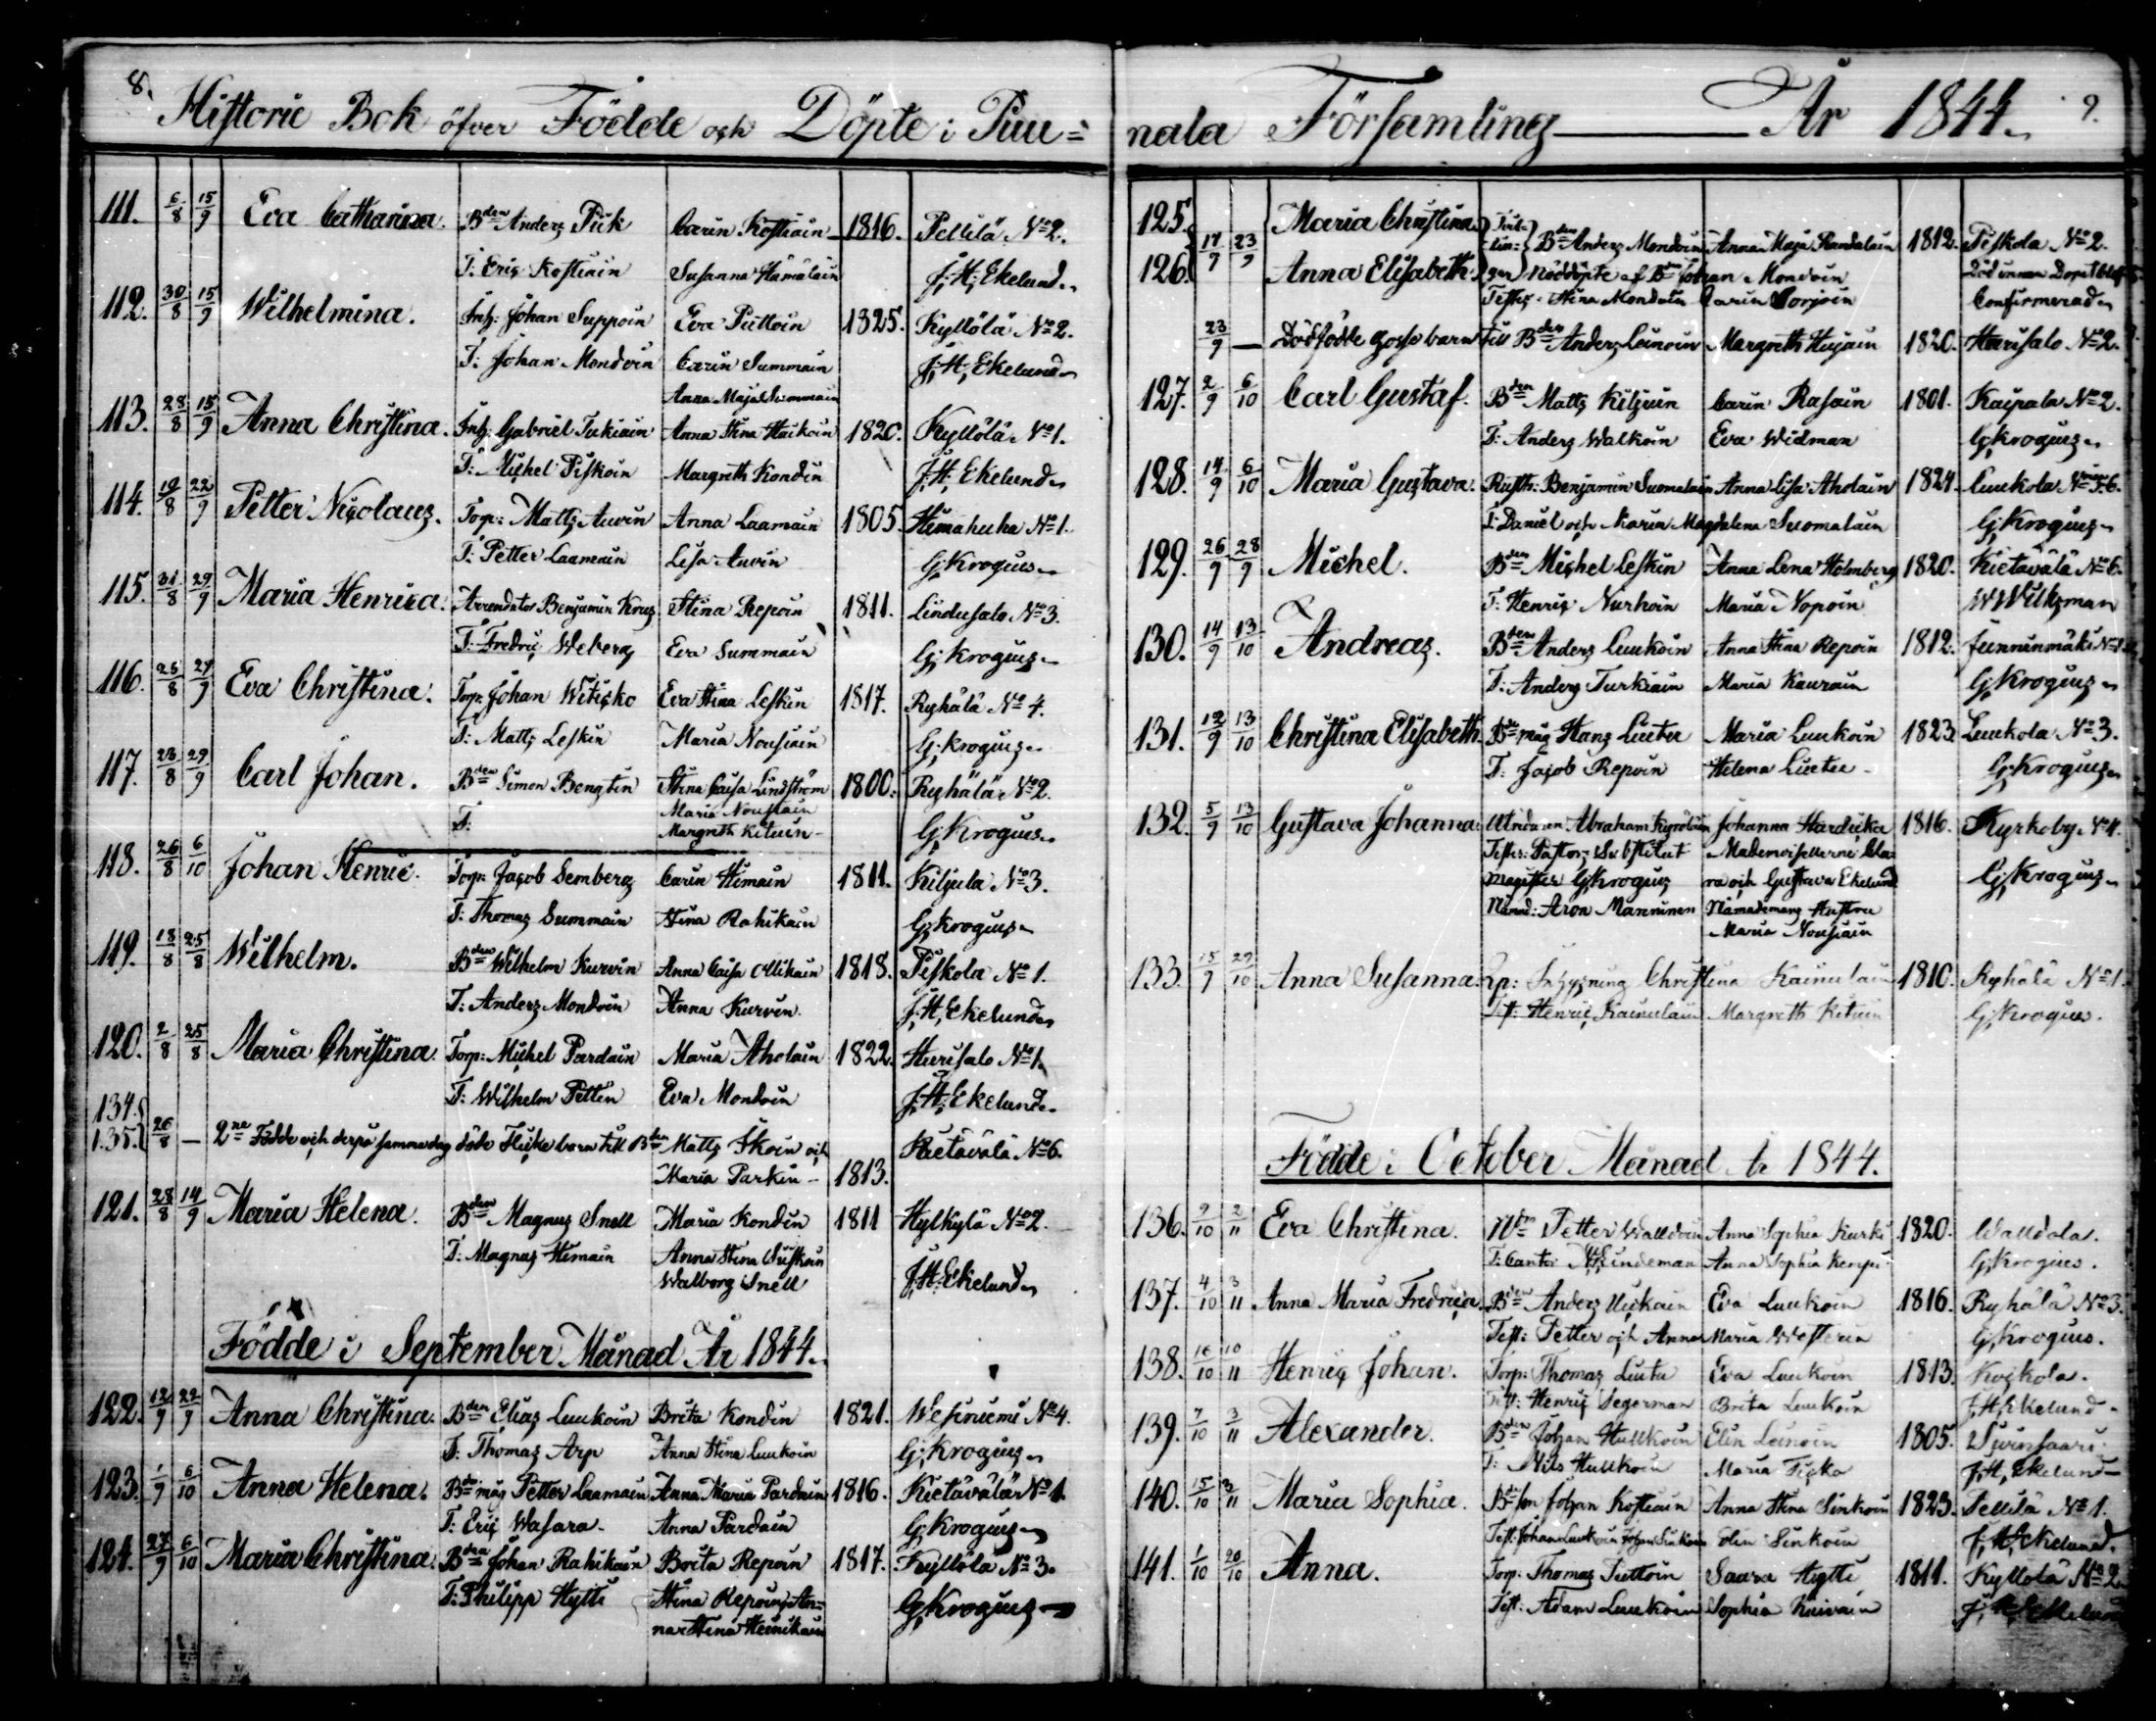 8.
Historie Bok öfver Födde och Döpte i Puu=
111. 6/8 15/9 Eva Catharina. Bden Anders Pick Carin Kostiain 1816. Pellilä No 2.
T: Eric Kostiain Susanna Hämäläin J; H; Ekelund.
112. 30/8 15/9 Wilhelmina. Inh: Johan Suppoin Eva Puttoin 1825. Kyllölä No 2.
T: Johan Mondoin Carin Summain J; H; Ekelund
Anna Maja Summain
113. 28/8 15/9 Anna Christina. Inh: Gabriel Tukiain Anna Stina Haikoin 1820. Kyllölä No 1.
T: Michel Piskoin Margreth Kondin J; H; Ekelund
114. 19/8 22/9 Petter Nicolaus. Torp: Matts Auvin Anna Laamain 1805. Himahuha No 1.
T: Petter Laamain Lisa Auvin G; Krogius
115. 31/8 29/9 Maria Henrica. Arrendator Benjamin Krug Stina Repoin 1811. Lindusalo No 3.
T: Fredric Weberg Eva Summain G; Krogius
116. 25/8 29/9 Eva Christina. Torp: Johan Witicko Eva Stina Leskin 1817. Ryhälä No 4.
T: Matts Leskin Maria Nousiain G; Krogius
117. 28/8 29/9 Carl Johan. Bden Simon Bengtin Stina Caisa Lindström 1800. Ryhälä No 2.
T: Maria Nousiain
Margreth Kituin G; Krogius
118. 26/8 6/10 Johan Henric. Torp: Jacob Semberg Carin Himain 1811. Kiljula No 3.
T: Thomas Summain Stina Rahikain G; Krogius
119. 18/8 25/8 Wilhelm. Bden Wilhelm Kurvin Anna Caisa Ollikain 1818. Piskola No 1.
T: Anders Mondoin Anna Kurvin J; H; Ekelund
120. 2/8 25/8 Maria Christina. Torp: Michel Pardain Maria Aholain 1822. Hurisalo No 1.
T: Wilhelm Pettin Eva Mondoin J; H; Ekelund
134.
135. 26/8 — 2ne Födde och derpå samma dag döde Flicke barn till Bden Matts Ikoin och Kietävälä No 6.
Maria Parkin 1813.
121. 28/8 14/9 Maria Helena. Bden Magnus Snell Maria Kondin 1811 Hylkylä No 2.
T: Magnus Himain Anna Stina
Walborg Snell J; H; Ekelund
Födde i September Månad År 1844.
122. 12/9 22/9 Anna Christina. Bden Elias Luukoin Brita Kondin 1821. Wesiniemi No 4.
T: Thomas Arp Anna Stina Luukoin G; Krogius
123. 1/9 6/10 Anna Helena. Bde måg Petter Laamain Anna Maria Pardain 1816. Kietävälä No 1.
T: Eric Wasara Anna Pardain G; Krogius
124. 27/9 6/10 Maria Christina. Bden Johan Rahikain Brita Repoin 1817. Kyllölä No 3.
T: Philipp Hytti Stina Repoin, An=
na Stina Heinikain G; Krogius
nala Församling År 1844. 9.
125. Maria Christina
126. 17/9 23/9 Anna Elisabeth. Bden Anders Mondoin Anna Maja Pandalain 1812. Piskola No 2.
Nöddöpte af Bden Johan Mondoin
Testes: Stina Mondoin Carin Confirmerad
23/9 — Dödfödde gosse barn till Bden Anders Leinoin Margreth Hujain 1820. Hurisalo No 2.
127. 2/9 6/10 Carl Gustaf. Bden Matts Kiljuin Carin Rasain 1801. Kaipala No 2.
T: Anders Walkoin Eva Widman G; Krogius
128. 14/9 6/10 Maria Gustava. Rusth: Benjamin Suomalain Anna Lisa Aholain 1824. Luukola
T: Daniel och Maria Magdalena Suomalain G; Krogius
129. 26/9 28/9 Michel. Bden Michel Leskin Anna Lena Holmberg 1820. Kietävälä No 6.
T: Henric Nurhoin Maria Nopoin
130. 14/9 13/10 Andreas. Bden Anders Luukoin Anna Stina Repoin 1812. Junninmäki
T: Anders Turkiain Maria Kaurain G; Krogius
131. 12/9 13/10 Christina Elisabeth. Bde måg Hans Liutu Maria Luukoin 1823. Luukola No 3.
T: Jacob Repoin Helena Liutu G; Krogius
132. 5/9 13/10 Gustava Johanna. Abraham Kyröläin Johanna Hardicka 1816. Kyrkoby No 1.
Testes: Pastors Substitut Mademoisellerne Cla=
Magister G Krogius ra och Gustava Ekelund G; Krogius
Nämnd: Aron Manninen Nämndemans Hustru
Maria Nousiain
133. 15/9 29/10 Anna Susanna. Christina Kainulain 1810. Ryhälä No 1.
Test: Henric Kainulain Margreth Kituin G; Krogius.
Födde i October Månad År 1844.
136. 9/10 2/11 Eva Christina. Petter Walldoin Anna Sophia Kurki 1820. Walldola.
T: Cantor Lindeman Anna Sophia G; Krogius.
137. 4/10 3/11 Anna Maria Fredrica. Bden Anders Uckain Eva Luukoin 1816. Ryhälä No 3.
Test: Petter och Anna Maria G; Krogius.
138. 16/10 10/11 Henric Johan. Torp: Thomas Liutu Eva Luukoin 1813. Koskola.
Test: Henric Segerman Brita Luukoin J; H; Ekelund
139. 7/10 3/11 Alexander. Bden Johan Hulkoin Elin Leinoin 1805.
T: Nils Hulkoin Maria Ticka J; H; Ekelund
140. 15/10 3/11 Maria Sophia. Bde son Johan Kostiain Anna Stina Sinkoin 1823. Pellilä No 1.
Test: Johan Luukoin Johan Sinkoin Elin Sinkoin J; H; Ekelund
141. 1/10 20/10 Anna. Torp: Thomas Puttoin Saara Hytti 1811. Kyllölä No 2.
Test: Adam Luukoin Sophia